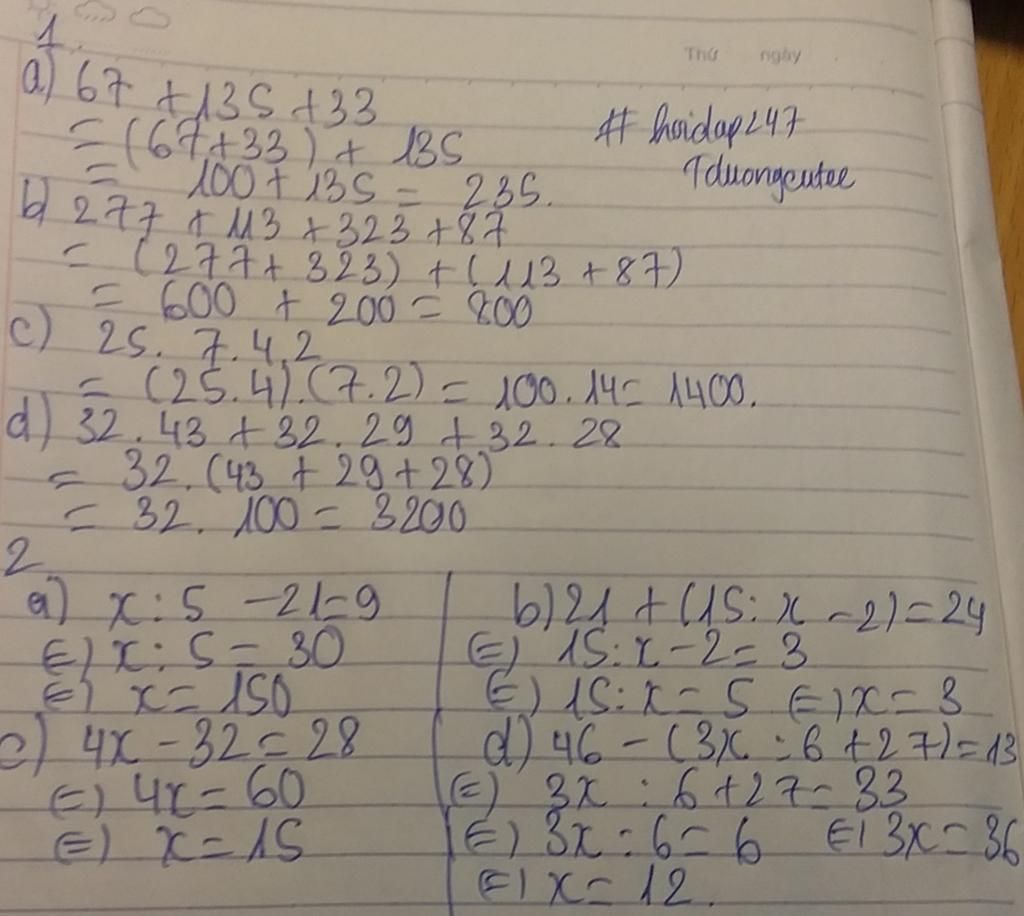 Thứ ngày
1
a) 67 + 135 + 33
= (67+33) + 135
= 100 + 135 = 235.
# hoidap247
Tduongcutee
b) 277 + 113 + 323 + 87
= (277 + 323) + (113 + 87)
= 600 + 200 = 800
c) 25. 7. 4. 2
= (25.4).(7.2) = 100. 14 = 1400.
d) 32. 43 + 32. 29 + 32. 28
= 32. (43 + 29 + 28)
= 32. 100 = 3200
2
a) x : 5 - 21 = 9
(=) x : 5 = 30
(=) x = 150
b) 21 + (15 : x - 2) = 24
(=) 15 : x - 2 = 3
(=) 15 : x = 5 (=) x = 3
c) 4x - 32 = 28
(=) 4x = 60
(=) x = 15
d) 46 - (3x : 6 + 27) = 13
(=) 3x : 6 + 27 = 33
(=) 3x : 6 = 6 (=) 3x = 36
(=) x = 12.